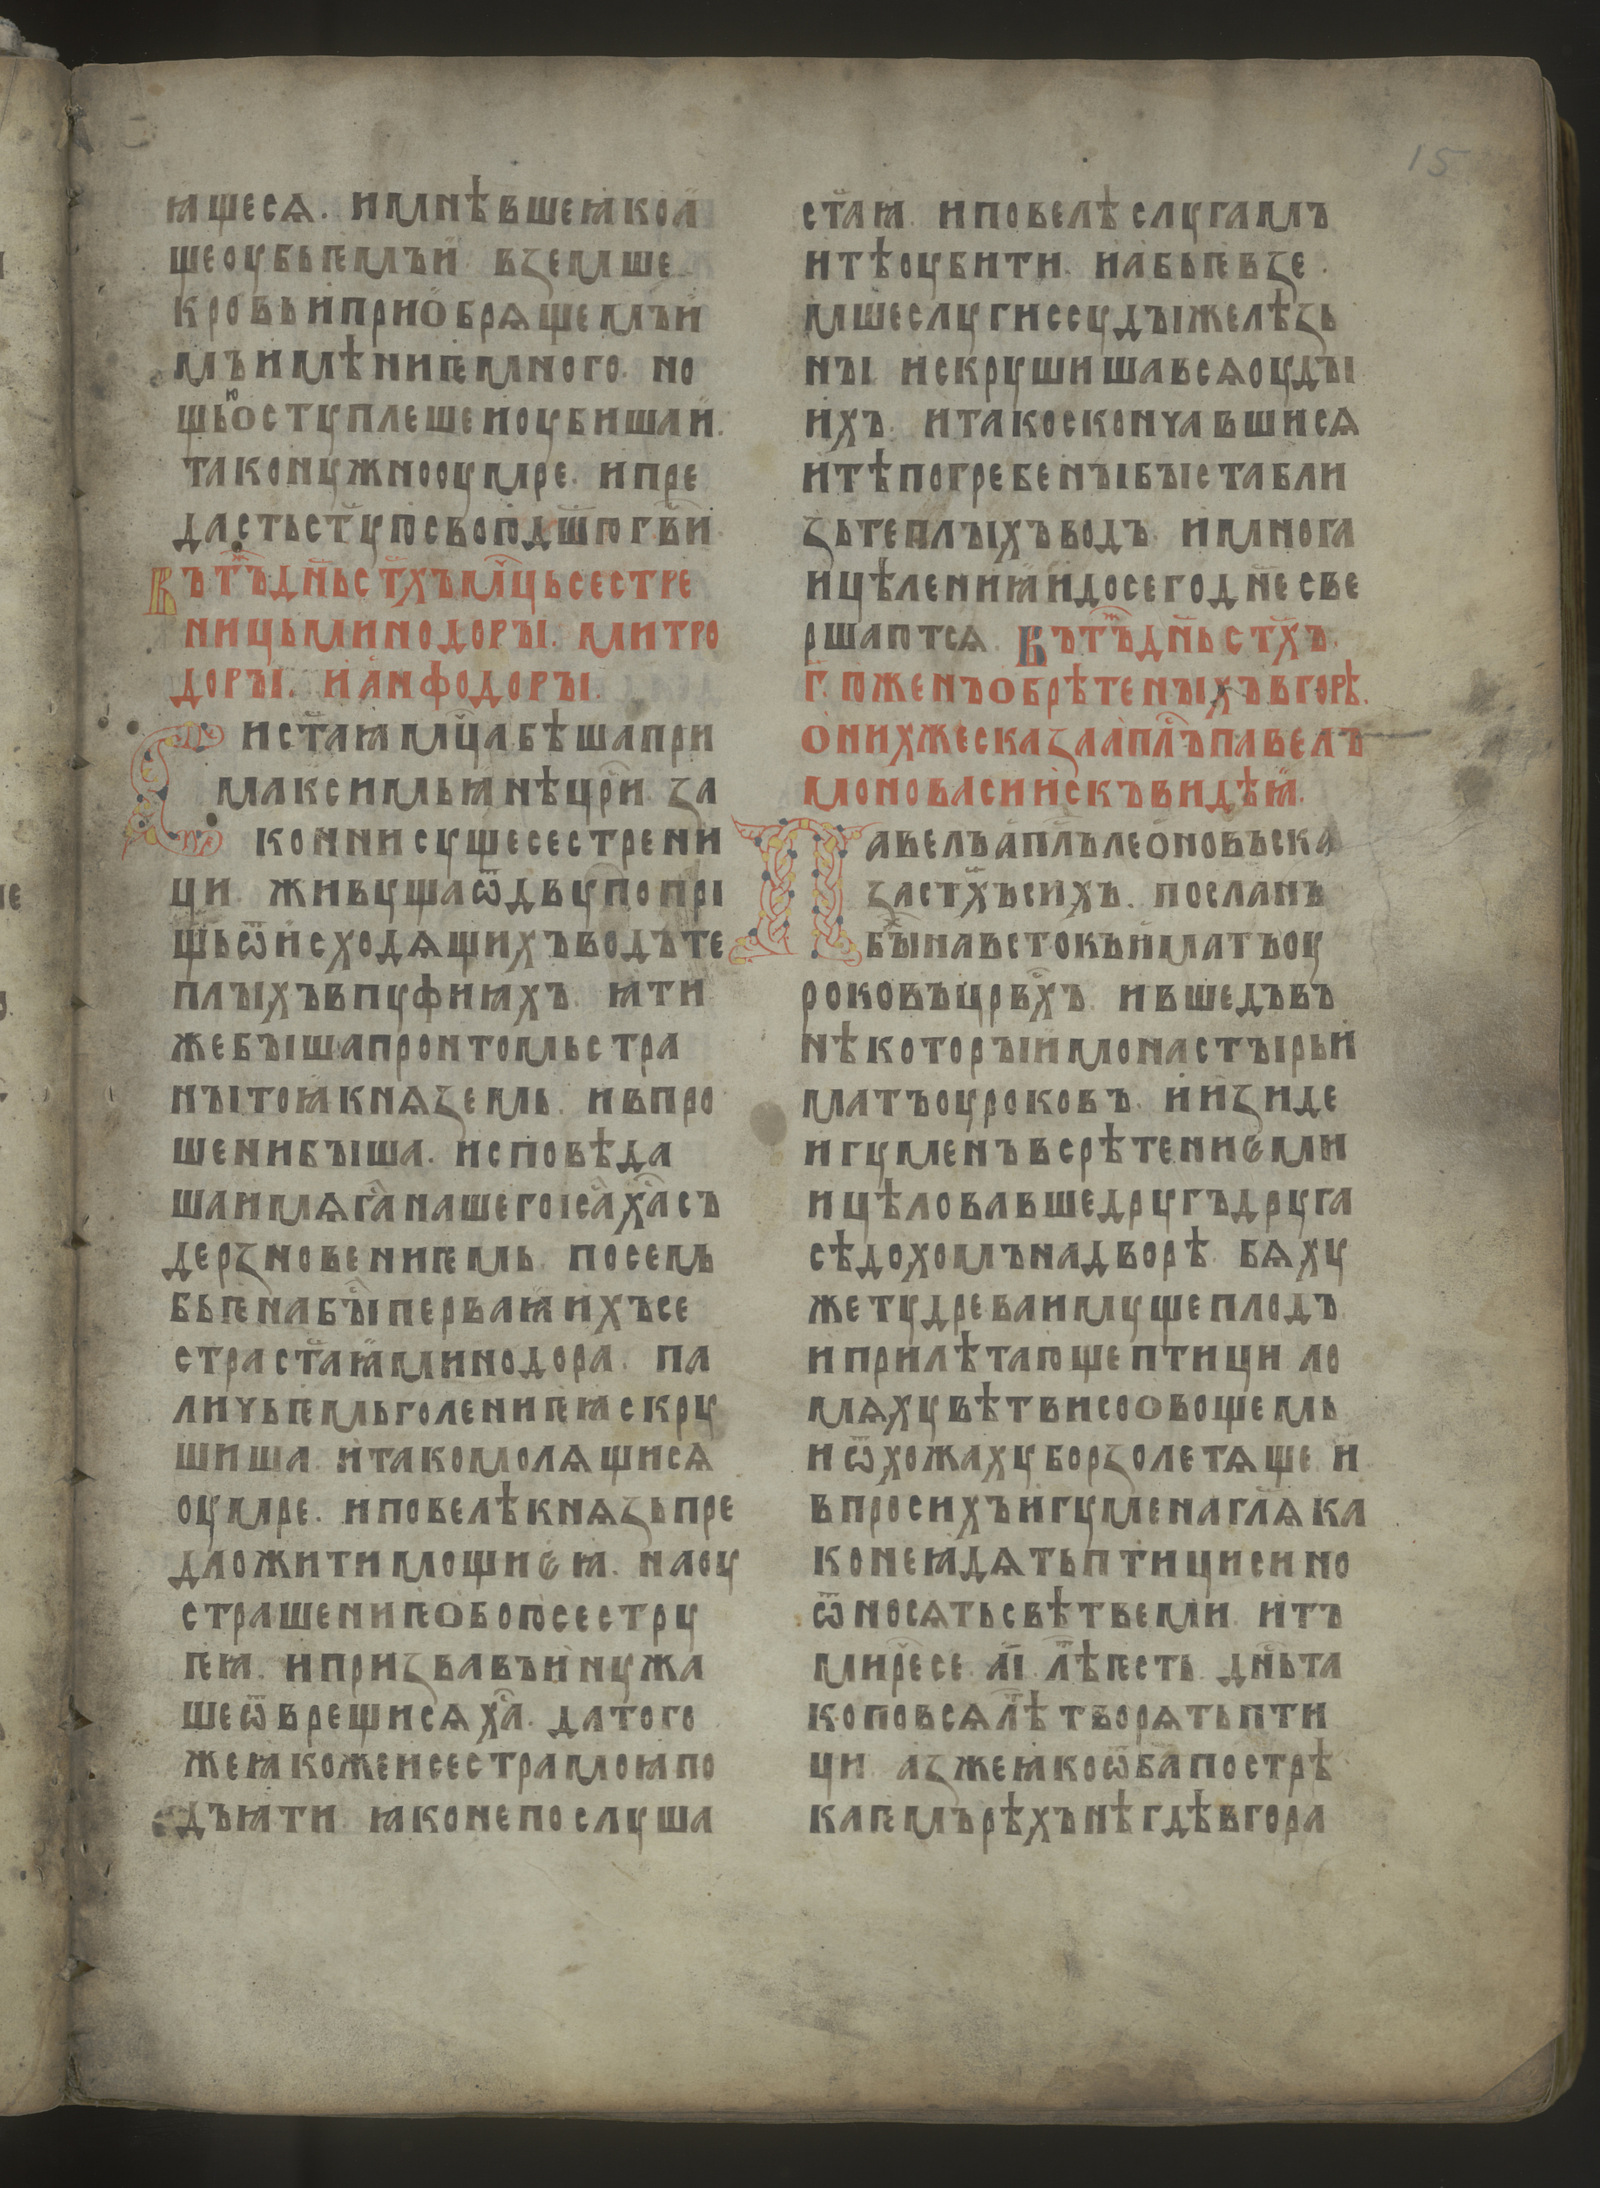 15
ꙗщесѧ. имнѣвшеꙗкоа
щеоубьѥмъи вꙁемше
кровьиприѡбрѧщемъи
мъимѣниѥмного. но
щьюѡступлешеиоубишаи.
таконужнооумре. ипре
дастьст҃уюсвоюдш҃югв҃и
Въто҃мъжедн҃ьст҃хъмц҃ьсестре
ницьминодоры. митро
доры. ианфодоры.
Сист҃аꙗмц҃абѣшапри
максимьꙗнѣцр҃и ꙁа
коннисущесестрени
ци. живущаѿдвупопрі
щьѿисходѧщихъводъте
плыхъвпуфиꙗхъ ꙗти
жебышапронтомьстра
нытоꙗкнѧꙁемь. ивпро
шенибыша. исповѣда
шаимѧга҃нашегоіса҃ха҃съ
дерꙁновениѥмь. посемь
бьѥнабы҃перваꙗихъсе
страст҃аꙗминодора. па
личьѥмьголениѥꙗскру
шиша итакомолѧщисѧ
оумре. иповелѣкнѧꙁьпре
дложитимощиѥꙗ. наоу
страшениѥѡбоюсестру
ѥꙗ. иприꙁвавъинужа
шеѿврещисѧха҃. датого
жеꙗкожеисестрамоꙗпо
дъꙗти ꙗконепослуша
ст҃аꙗ. иповелѣслугамъ
итѣоубити. иабьѥвꙁе.
мшеслугиссудыжелѣꙁь
ны искрушишавсѧоуды
ихъ. итакоскончавшисѧ
итѣпогребеныбыставбли
ꙁьтеплыхъводъ имнога
ицѣлениꙗидосегодн҃есве
ршаютсѧ. Въто҃мъжедн҃ьст҃хъ
г҃. юженъѡбрѣтеныхъвгорѣ.
ѡнихжескаꙁаап҃лъпавелъ
моновасиискъвидѣꙗ.
Павелъап҃лълеоновъска
ꙁаст҃хъсихъ. посланъ
бы҃навстокъиматъоу
роковъцр҃вхъ ившедъвъ
нѣкоторыимонастырьи
матъоуроковъ. ииꙁиде
игуменъвсрѣтениѥми
ицѣловавшедругъдруга
сѣдохомънадворѣ. бѧху
жетудреваимущеплодъ
иприлѣтающептици ло
млѧхувѣтвисоѡвощемь
иѿхожахуборꙁолетѧще и
впросихъигуменагл҃ѧка
конеꙗдѧтьптицисино
ѿносѧтьсвѣтьвеми итъ
мир҃есе. а҃і. лѣ҃ѥсть. дн҃ьта
коповсѧлѣ҃творѧтьпти
ци аꙁжеꙗкоѿба҃пострѣ
каѥмърѣхънѣгдѣвгора